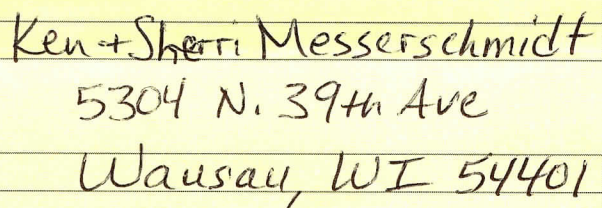 Ken + Sherri Messerschmidt
5304 N. 39th Ave
Wausau, WI 54401